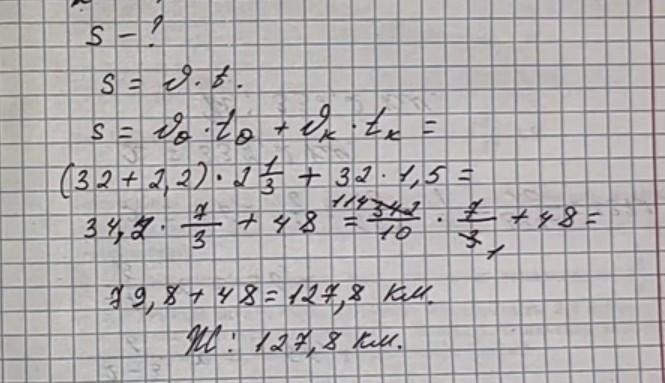 s - ?
s = υ · t.
s = υ₀ · t₀ + υₖ · tₖ =
(32 + 2,2) · 2 1/3 + 32 · 1,5 =
34,2 · 7/3 + 48 = 114 342/10 · 7/3 1 + 48 =
79,8 + 48 = 127,8 км.
Ж: 127,8 км.